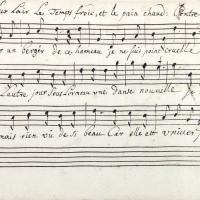 Sur l'air Le Temps froid, et le pain chaud. Contre
un berger de ce hameau je ne suis point cruelle
L'autre jour sous l'ormeau une Danse nouvelle
mais rien vu de si beau Car elle est